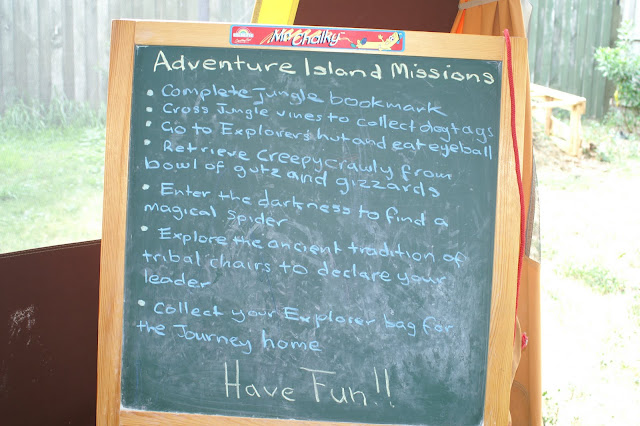 Mr Chalky
Adventure Island Missions
• Complete jungle bookmark
• Cross Jungle vines to collect dog tags
• Go to Explorers hut and eat eyeball
• Retrieve creepy crawly from
bowl of gutz and gizzards
• Enter the darkness to find a
magical spider
• Explore the ancient tradition of
tribal chairs to declare your
leader
• Collect your Explorer bag for
the Journey home
Have Fun!!